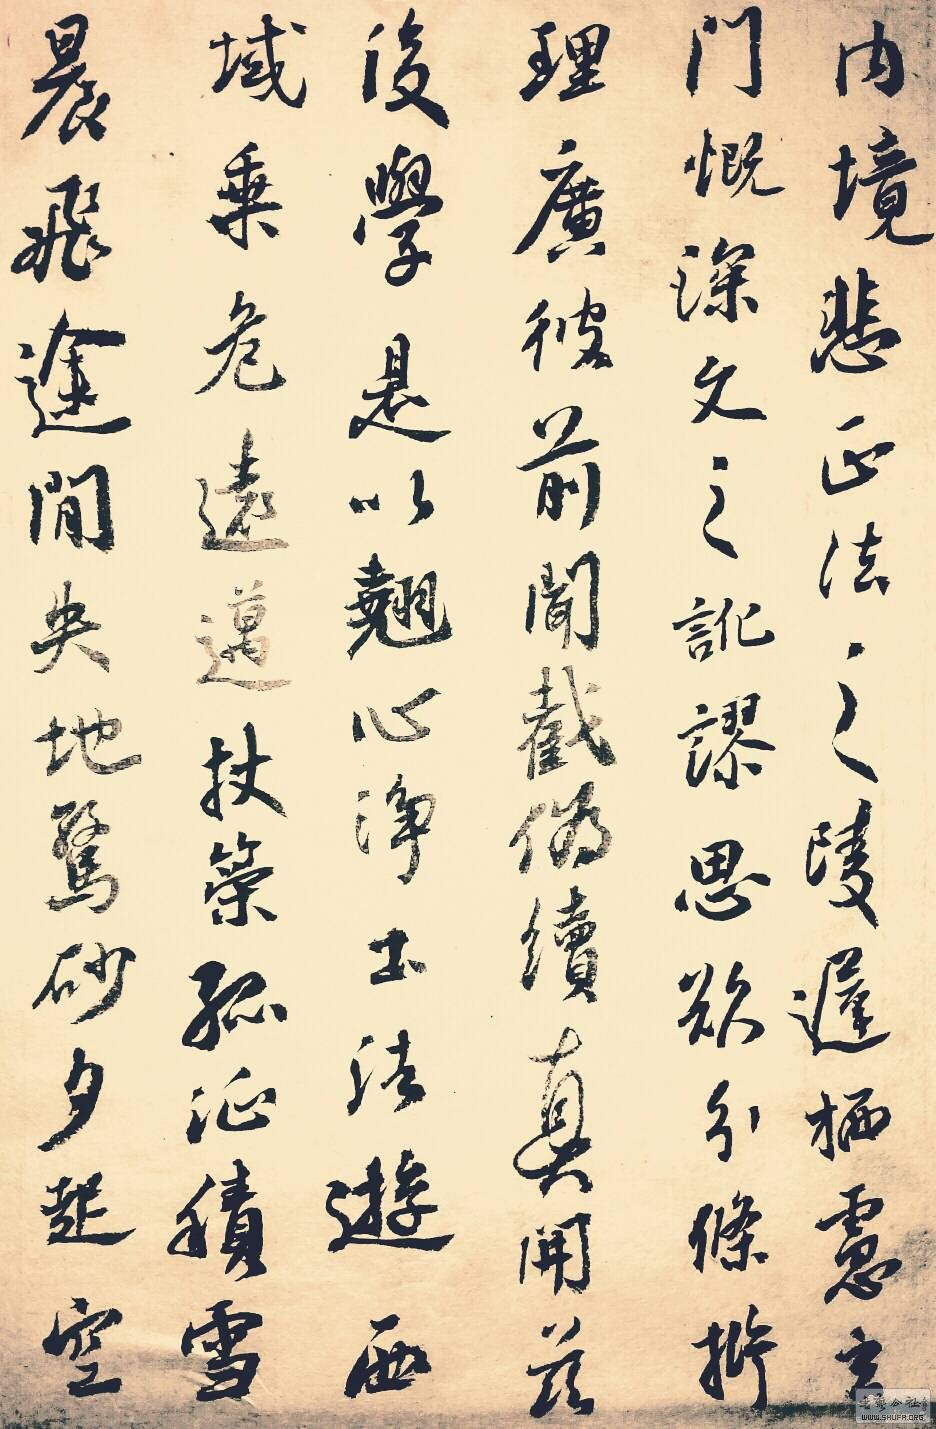 内境悲正法之陵遲栖慮玄
門慨深文之訛謬思欲分條析
理廣彼前聞截偽續真開茲
後學是以翹心淨土法遊西
域乗危遠邁杖策孤征積雪
晨飛途閒失地驚砂夕起空
WWW.SHUFA.ORG